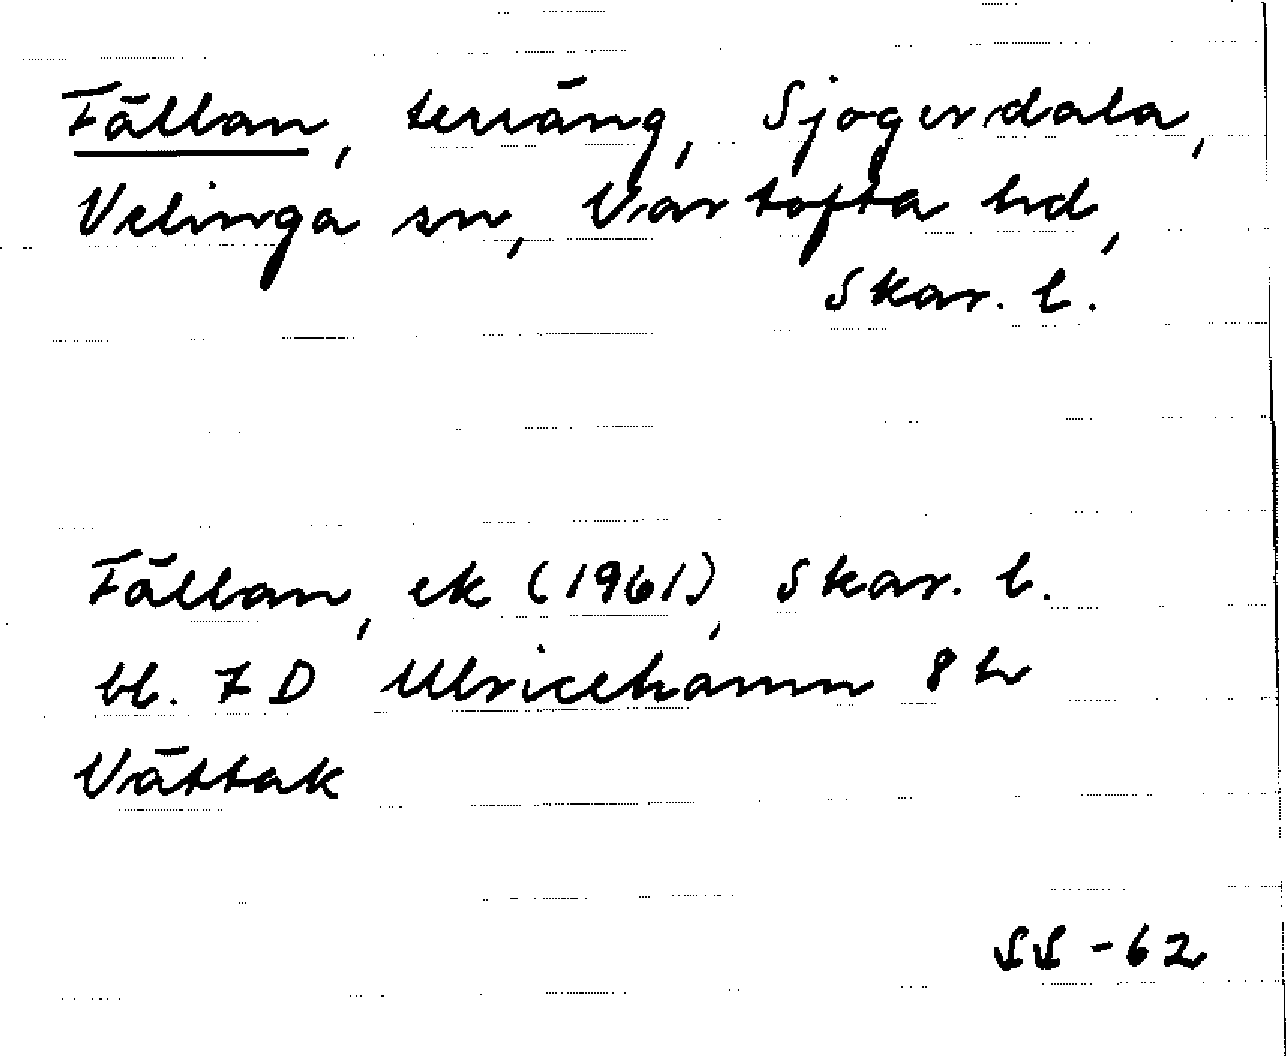 Fällan, terräng, Sjogerdala,
Velinga sn, Vartofta hd,
Skar. l.
Fällan, ek (1961), Skar. l.
bl. 7 D Ulricehamn 8 h
Vättak
SS-62